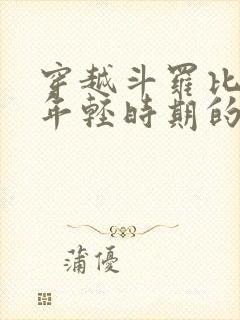 穿越斗羅比
年輕時期的
蒲優